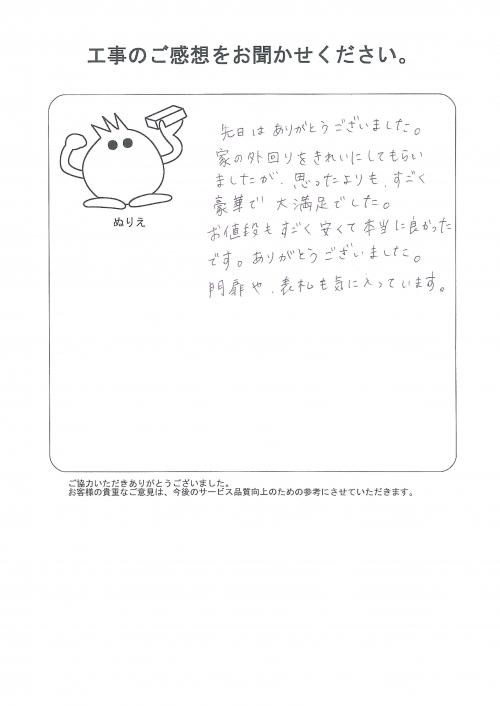 工事のご感想をお聞かせください。
先日はありがとうございました。
家の外回りをきれいにしてもらい
ましたが、思ったよりも、すごく
豪華で大満足でした。
お値段もすごく安くて本当に良かった
です。ありがとうございました。
門扉や、表札も気に入っています。
ぬりえ
ご協力いただきありがとうございました。
お客様の貴重なご意見は、今後のサービス品質向上のための参考にさせていただきます。